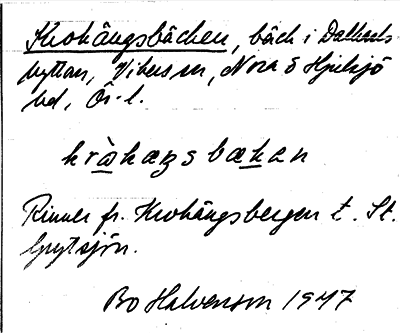 Krohängsbäcken, bäck i Dalkarls
hyttan, Vikers sn, Nora o Hjulsjö
bd, Ör. l.
kràhæŋsbækan
Rinner fr. Krohängsbergen t. St.
Grytsjön.
Bo Halvarson 1947